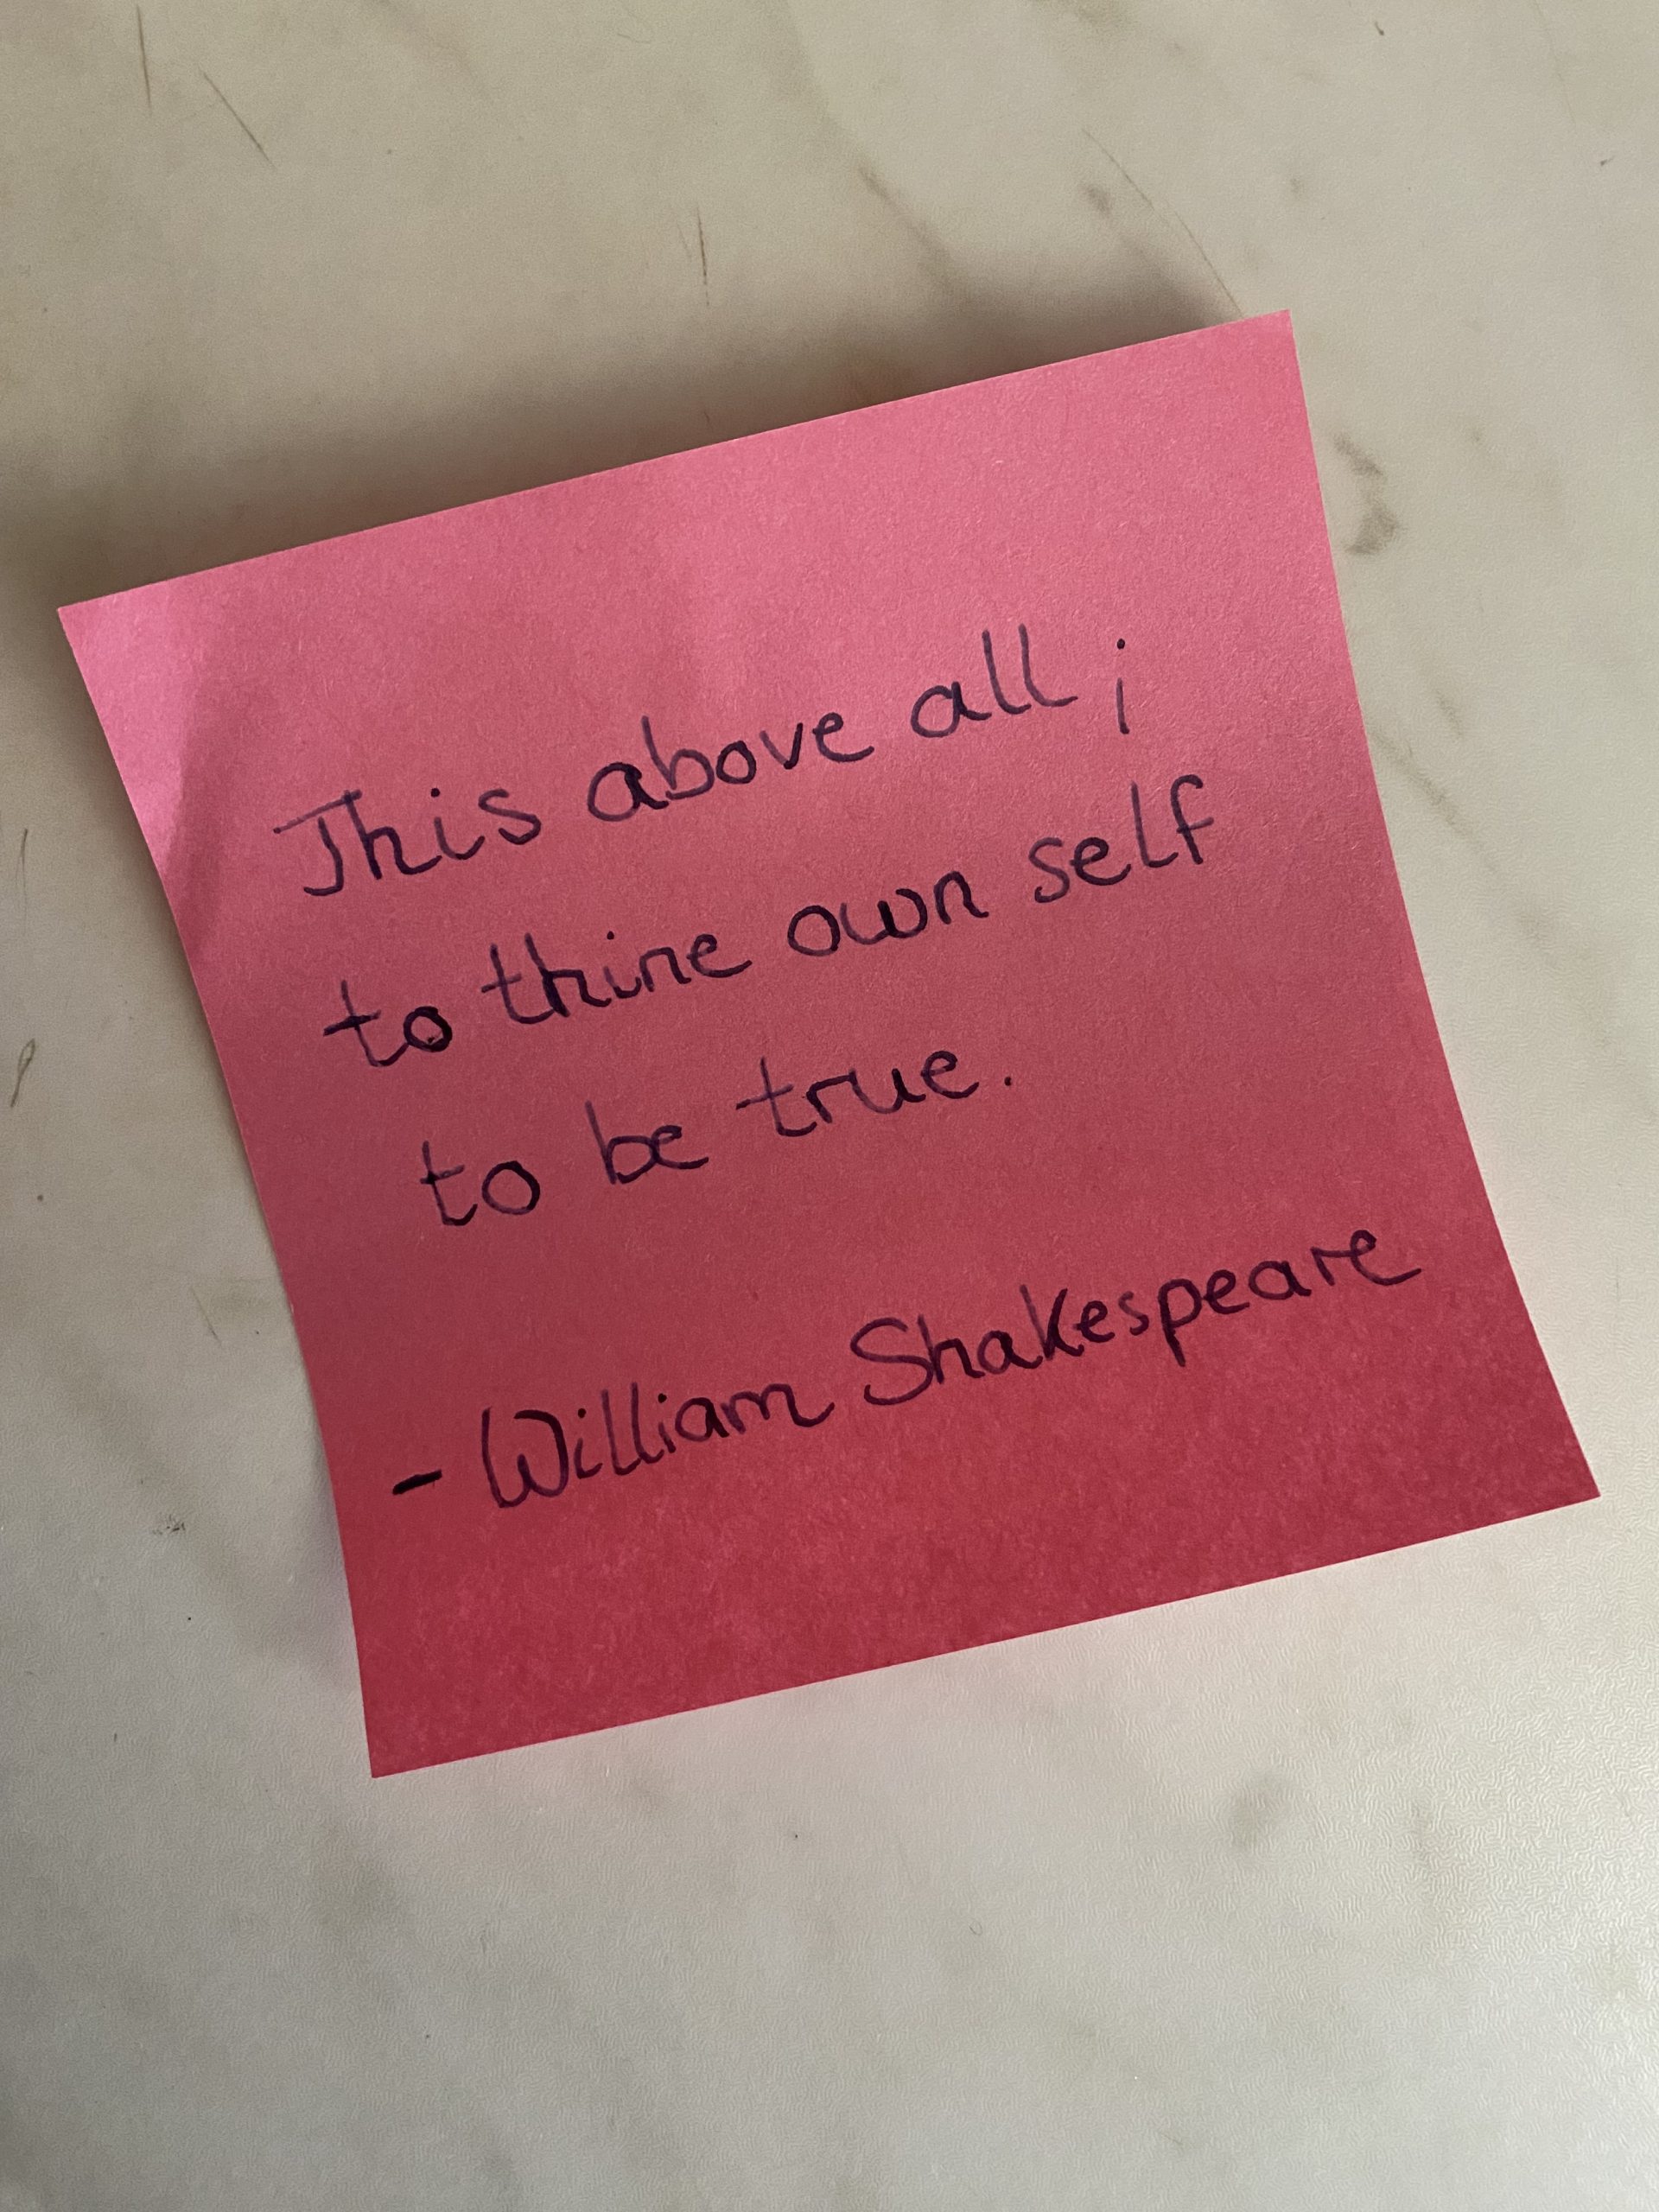 This above all ;
to thine own self
to be true.
- William Shakespeare